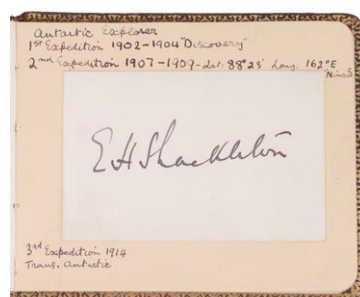 Antartic Explorer
1st Expedition 1902-1904 "Discovery"
2nd Expedition 1907-1909-Lat: 88° 23' Long: 162° E
E H Shackleton
3rd Expedition 1914
Trans. Antartic